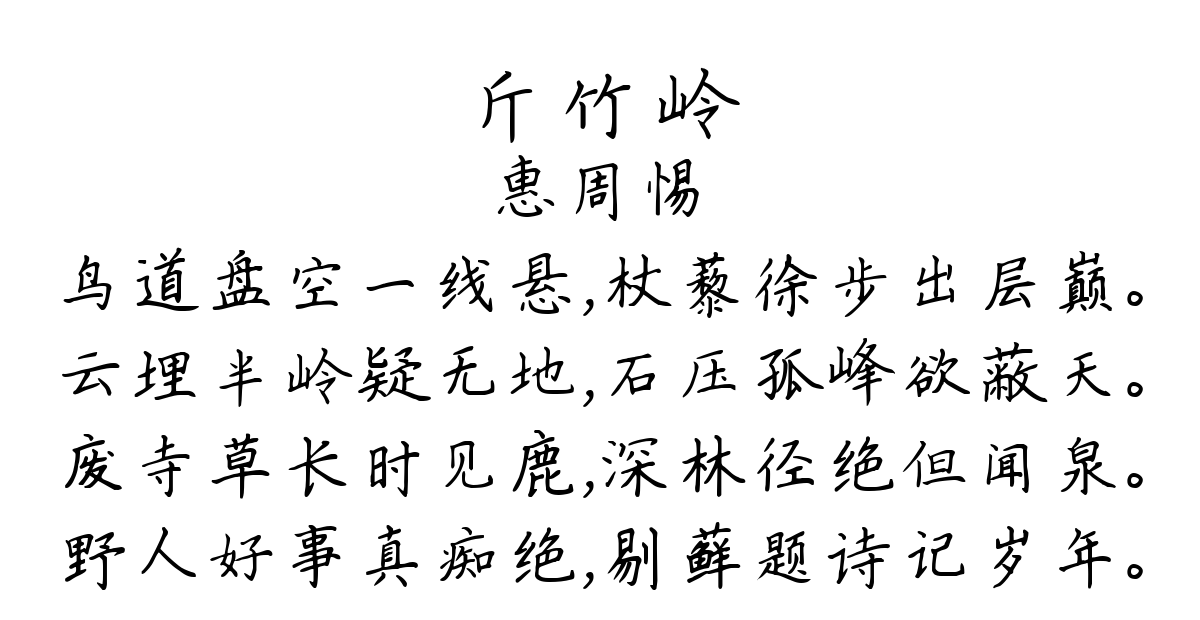 斤竹岭
惠周惕
鸟道盘空一线悬,杖藜徐步出层巅。
云埋半岭疑无地,石压孤峰欲蔽天。
废寺草长时见鹿,深林径绝但闻泉。
野人好事真痴绝,剔藓题诗记岁年。